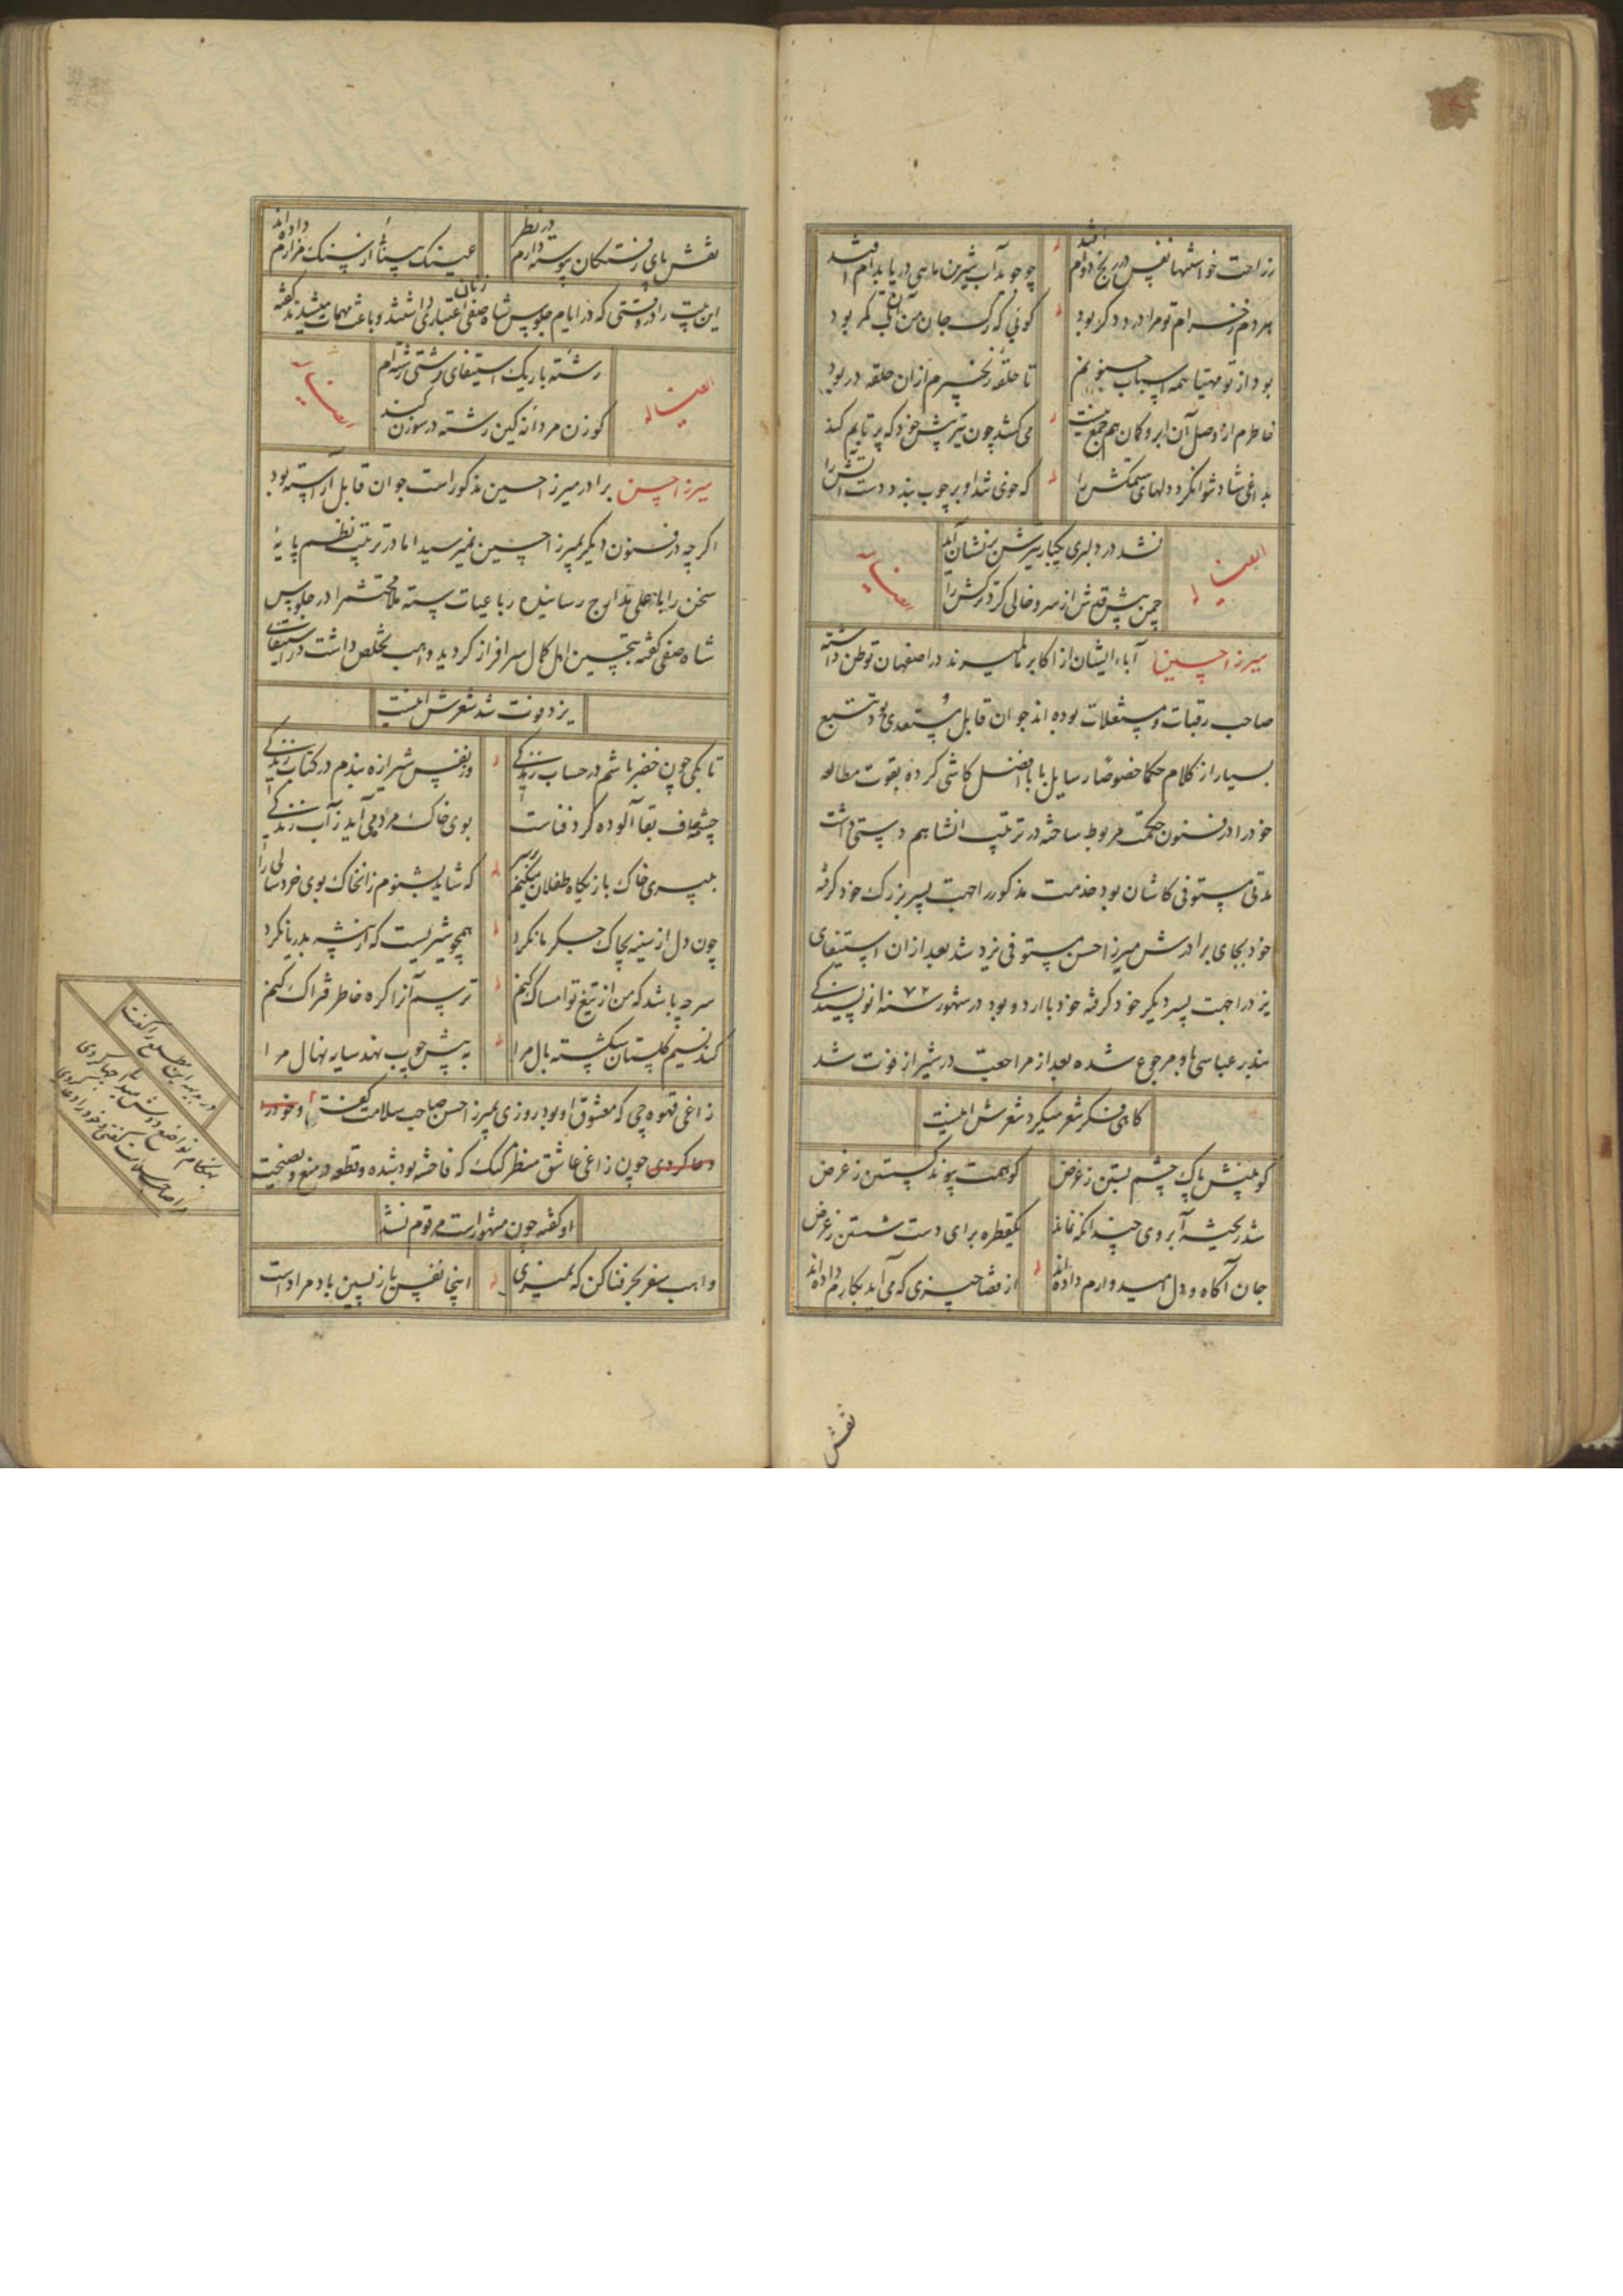 ز راحت خواستنها نفس در رنج دوام افتد چو جوید آب شیرین ماهی دریا بدام افتد
هر دم ز خرام تو مرا درد دگر بود گوئی که رگ جان من آن کمر بود
بود از تو مهیا همه اسباب جنونم تا حلقه زنجیرم ازان حلقه در بود
خاطرم از وصل آن ابرو کمان هم جمع نیست می کشد چون تیر پیش خود که پرتابم کند
بداغی شاد نتوان کرد دلهای ستمکش را که خوی شد او بر چوب بندد دست آتش را
ایضا له
نشد در دلبری یکبار تیرش بر نشان آید
چمن پیش قدش از سرو خالی کرد ترکش را
ایضا له
میرزا حسین آباء ایشان از اکابر المیرند در اصفهان توطن داشته
صاحب رقبات و مستغلات بوده اند جوان قابل و مستعدی بود تتبع
بسیار از کلام حکما خصوصا رسایل بابا افضل کاشی کرده بقوت مطالعه
خود را در فنون حکمت مربوط ساخته در ترتیب انشا هم دستی داشت
مدتی مستوفی کاشان بود خدمت مذکور را جهت پسر بزرگ خود گرفته
خود بجای برادرش میرزا احسن مستوفی یزد شد بعد از ان استیفای
یزد را جهت پسر دیگر خود گرفته خود با اردو بود در شهور سنه ۷۲ انویسندگی
بندر عباسی باو مرجوع شده بعد از مراجعت در شیراز فوت شد
گاهی فکر شعر میکرد شعرش اینست
کو بینش پاک چشم بستن ز غرض کو همت پیوند گسستن ز غرض
شد ریخته آبروی چندانکه نماند یکقطره برای دست شستن ز غرض
جان آگاه و دل امیدوارم داده اند از قضا چیزی که می آید بکارم داده اند
نقش
نقش پای رفتگان پیوسته دارم در نظر عینک بینائی از سنگ مزارم داده اند
این بیت را در وقتی که در ایام جلوس شاه صفی زنان اعتباری داشتند و باعث مهمات میشدند گفته
ایضا له
رشته باریک استیفای رشتی رشته ام
کو زن مردانه کین رشته در سوزن کند
ایضا له
میرزا احسن برادر میرزا حسین مذکور است جوان قابل آراسته بود
اگرچه در فنون دیگر بمیرزا حسین نمیرسید اما در ترتیب نظم پایهٔ
سخن را باعلی مدارج رسانیده رباعیات سته ملا محتشم را در جلوس
شاه صفی گفته بتحسین اهل کمال سرافراز گردید واهب تخلص داشت در استیفای
یزد فوت شد شعرش اینست
تا بکی چون خضر باشم در حساب زندگی وز نفس شیرازه بندم در کتاب زندگی
چشمه صاف بقا آلوده گرد فناست بوی خاک مرده می آید ز آب زندگی
به پیری خاک بازیگاه طفلان میکنم بر سر که شاید بشنوم زانخاک بوی خردسالی را
چون دل از سینه بچاک جگرم مانکرد همچو شیریست که از بیشه بدر پا نکرد
سر چه باشد که من از تیغ تو امساک کنم ترسم آزاکره خاطر فتراک کنم
کند نسیم گلستان شکسته بال مرا به پیش چوب نهد سایه نهال مرا
زاغی قهوه چی که معشوق او بود روزی بمیرزا احسن صاحب سلامت گفت و خود را
دعا کردی چون زاغی عاشق منظر کنک که فاحشه بود شده و قطعه در منع و نصیحت
او گفته چون مشهور است مرقوم نشد
واهب سفر بحر فنا کن که نمیری اینجا نفس باز پسین باد مراد است
در بدیهه این مطلع را گفت
بهنگام تواضع دوش بیداد جفا کردی
مرا صاحب سلامت گفتی و خود را دعا کردی